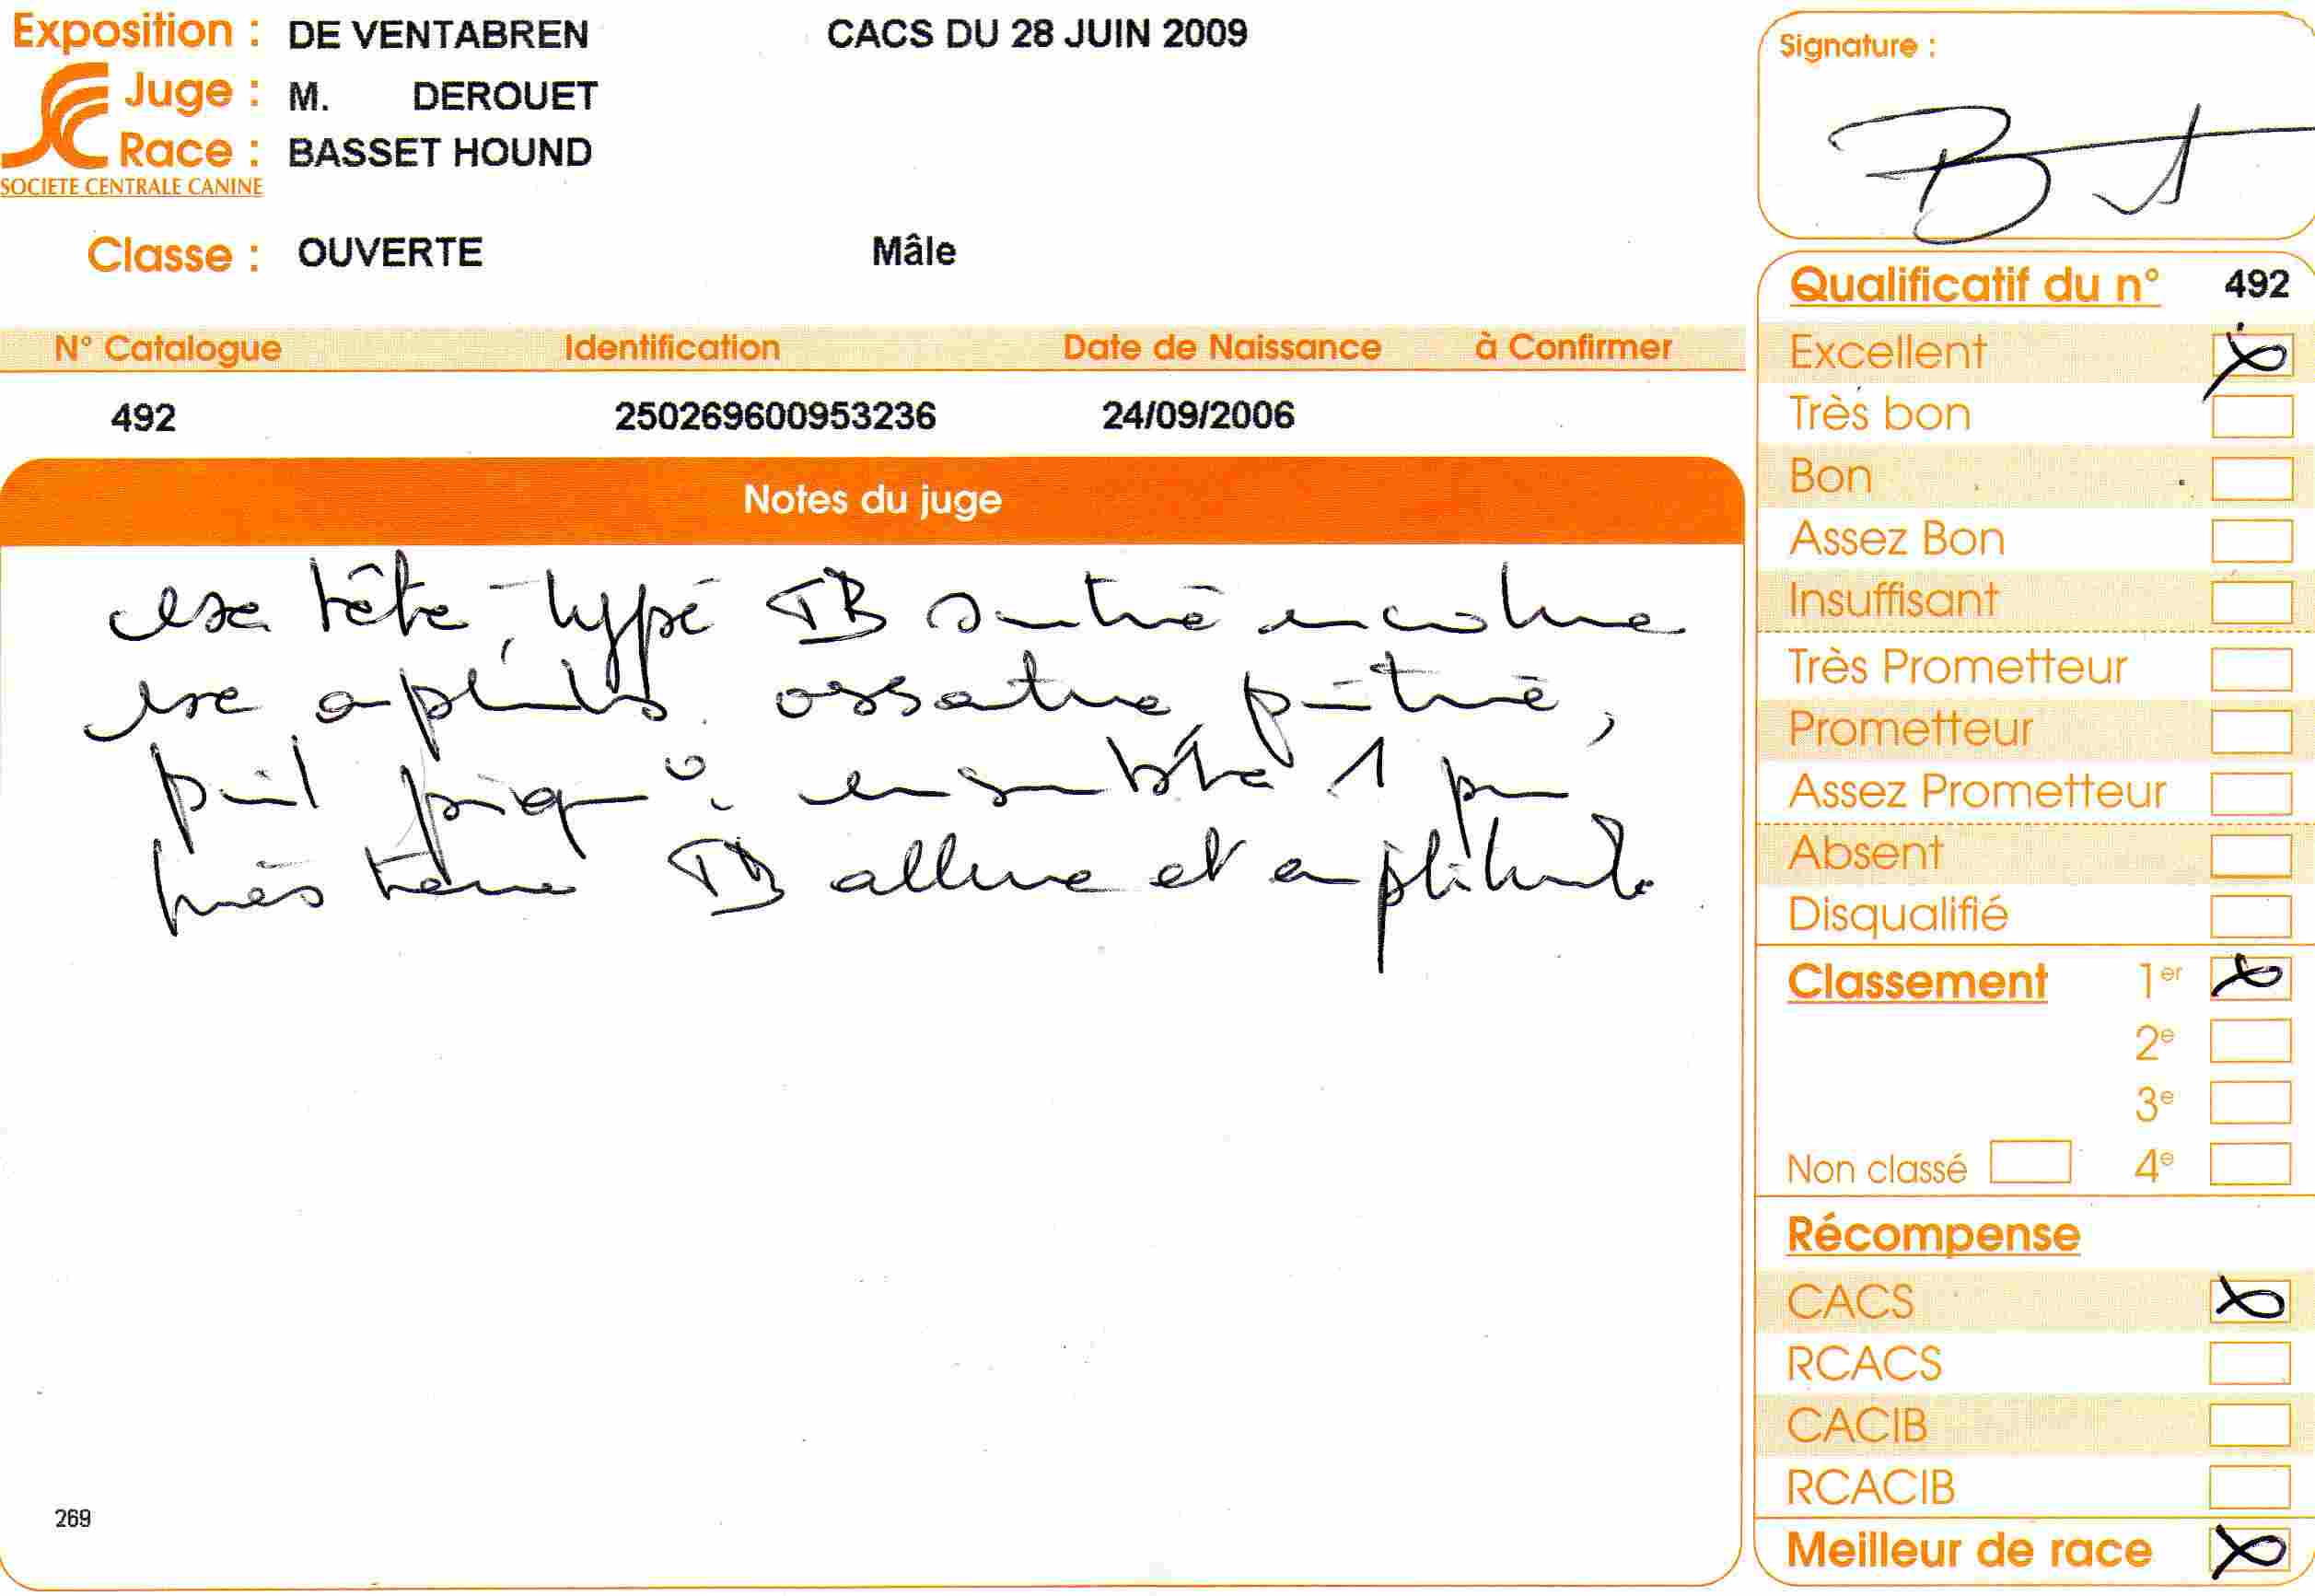 Exposition : DE VENTABREN CACS DU 28 JUIN 2009
Juge : M. DEROUET
Race : BASSET HOUND
SOCIETE CENTRALE CANINE
Classe : OUVERTE Mâle
N° Catalogue Identification Date de Naissance à Confirmer
492 250269600953236 24/09/2006
Notes du juge
tête, typé TB encolure
ossature, poitrine,
poil ensemble 1 peu
près terre TB allure et amplitude
269
Signature :
Qualificatif du n° 492
Excellent
Très bon
Bon
Assez Bon
Insuffisant
Très Prometteur
Prometteur
Assez Prometteur
Absent
Disqualifié
Classement 1er
2e
3e
Non classé 4e
Récompense
CACS
RCACS
CACIB
RCACIB
Meilleur de race